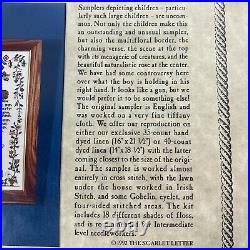 Samplers depicting children – par-
ticularly such large children – are uncom-
mon. Not only do the children make this
an outstanding and unusual sampler,
but also the multifloral border, the
charming verse, the scene at the top
with its menagerie of creatures, and the
beautiful naturalistic rose at the center.
We have had some controversy here
over what the boy is holding in his
right hand. It looks like a gun, but we
would prefer it to be something else!
The original sampler is English and
was worked on a very fine tiffany cloth.
We offer our reproduction on either
our exclusive 35-count hand dyed linen
(16"x 21 ½") or 40-count
dyed linen (14"x 18 ½") with the latter
coming closest to the size of the origi-
nal. The sampler is worked almost
entirely in cross stitch, with the lawn
under the house worked in Irish
Stitch, and some Gobelin, eyelet, and
four-sided stitched areas. The kit
includes 18 different shades of floss,
and is to Intermediate
level needleworkers.
© 1992 THE SCARLET LETTER